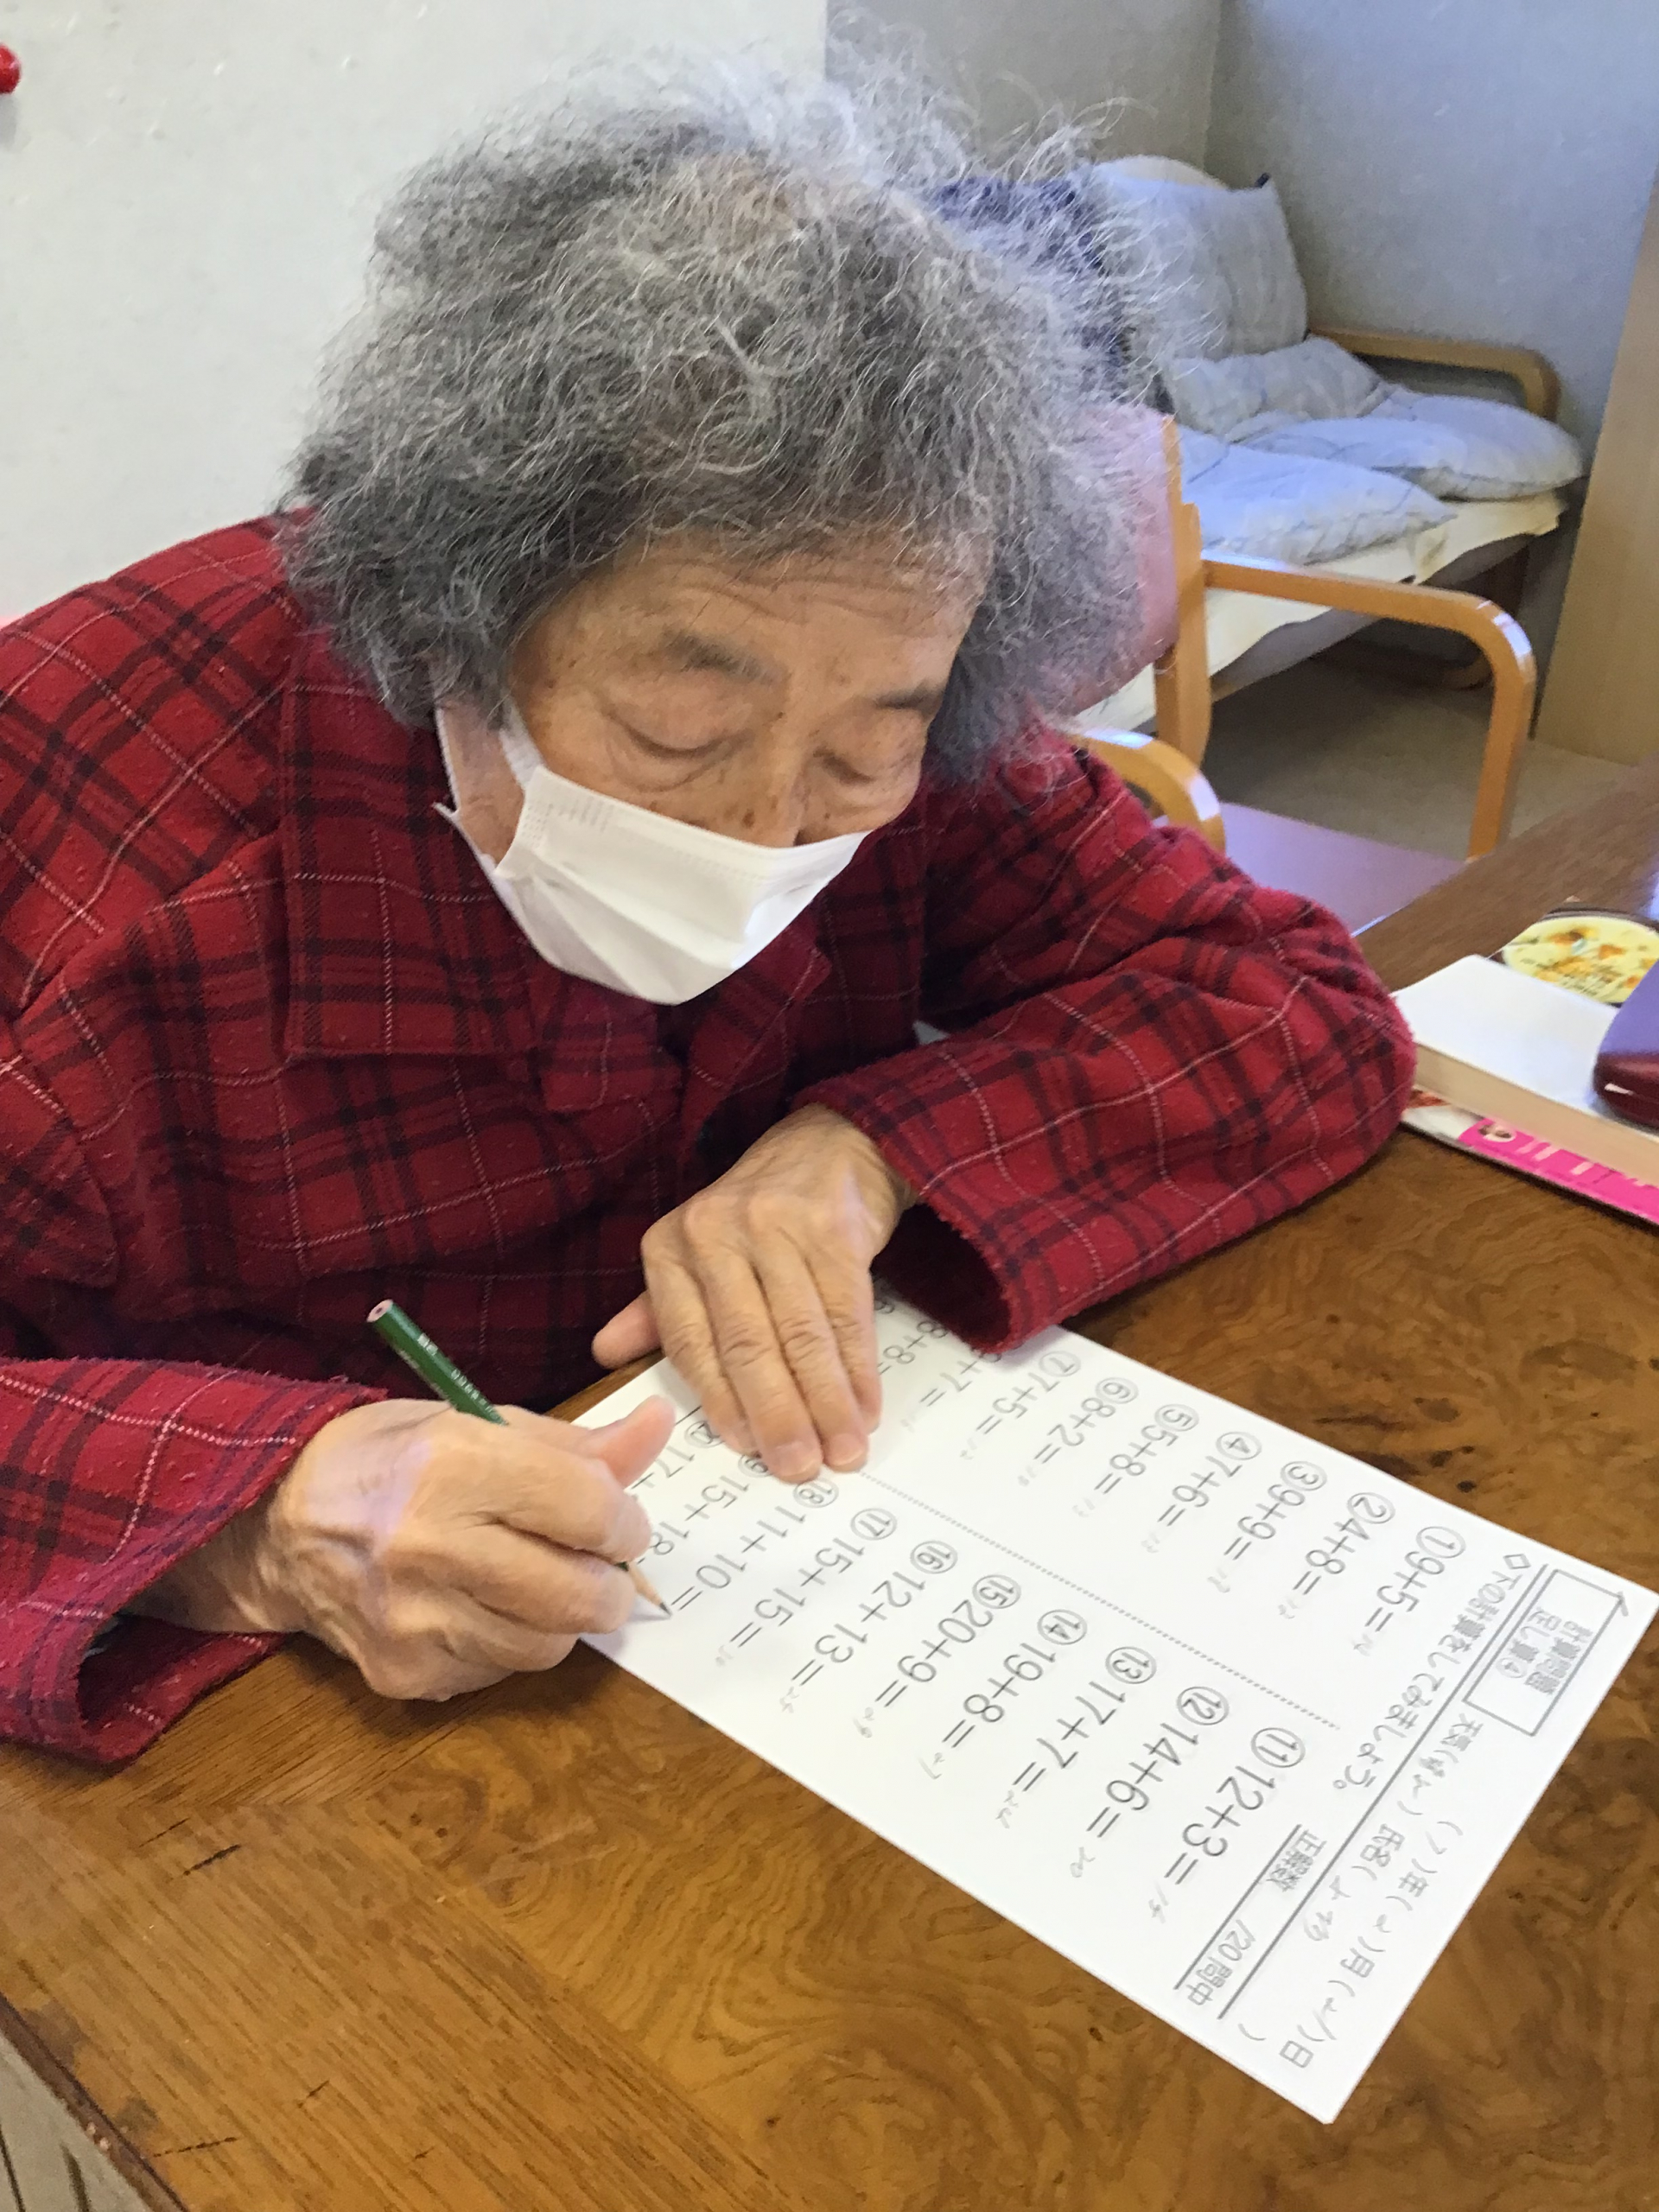 計算問題
足し算④
(7)年(2)月(21)日
天気(
) 氏名(
)
◇下の計算をしてみましょう。
正解数 /20問中
①9+5=14
②4+8=12
③9+9=18
④7+6=13
⑤5+8=13
⑥8+2=10
⑦7+5=12
+7=
8+8=
⑪12+3=15
⑫14+6=20
⑬17+7=24
⑭19+8=27
⑮20+9=29
⑯12+13=25
⑰15+15=30
⑱11+10=
⑲15+18
⑳17+